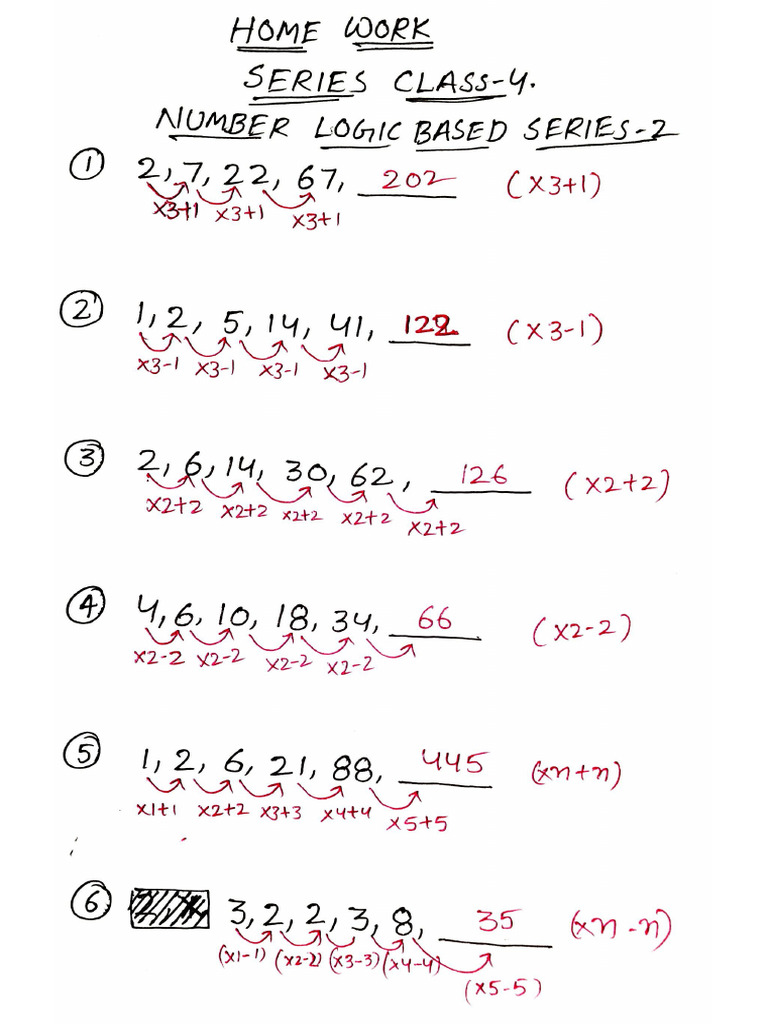 HOME WORK
SERIES CLASS-4.
NUMBER LOGIC BASED SERIES-2
① 2, 7, 22, 67, 202 (x3+1)
x3+1 x3+1 x3+1
② 1, 2, 5, 14, 41, 122 (x3-1)
x3-1 x3-1 x3-1 x3-1
③ 2, 6, 14, 30, 62, 126 (x2+2)
x2+2 x2+2 x2+2 x2+2 x2+2
④ 4, 6, 10, 18, 34, 66 (x2-2)
x2-2 x2-2 x2-2 x2-2
⑤ 1, 2, 6, 21, 88, 445 (xn+n)
x1+1 x2+2 x3+3 x4+4 x5+5
⑥ 3, 2, 2, 3, 8, 35 (xn-n)
(x1-1) (x2-2) (x3-3) (x4-4)
(x5-5)